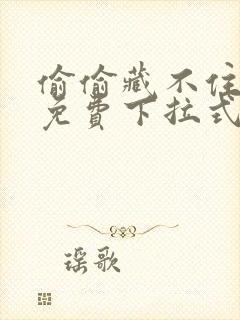 偷偷藏不住
免費下拉式
瑶歌